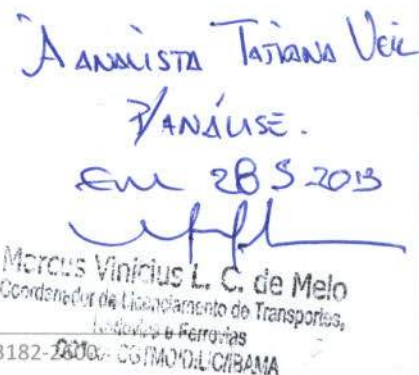 À ANALISTA TATIANA VEIL
P/ANÁLISE.
EM 28 5 2013
Marcus Vinicius L. C. de Melo
Coordenador de Licenciamento de Transportes,
Rodovias e Ferrovias
COTRA/CGTMO/DILIC/IBAMA
3182-2600